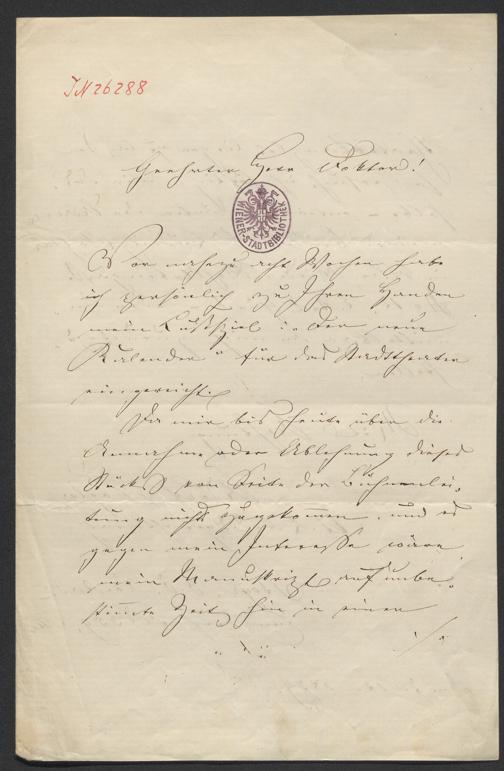 JN 26288
Geehrter Herr Doktor!
WIENER-STADTBIBLIOTHEK
Vor nahezu acht Wochen habe
ich persönlich zu Ihren Handen
mein Lustspiel: „Der neue
Kalender" für das Stadttheater
eingereicht.
Da mir bis heute über die
Annahme oder Ablehnung dieses
Stücks von Seite der Bühnenlei-
tung nichts zugekommen, und es
gegen mein Interesse wäre
mein Manuskript auf unbe-
stimmte Zeit hin in einem
./.